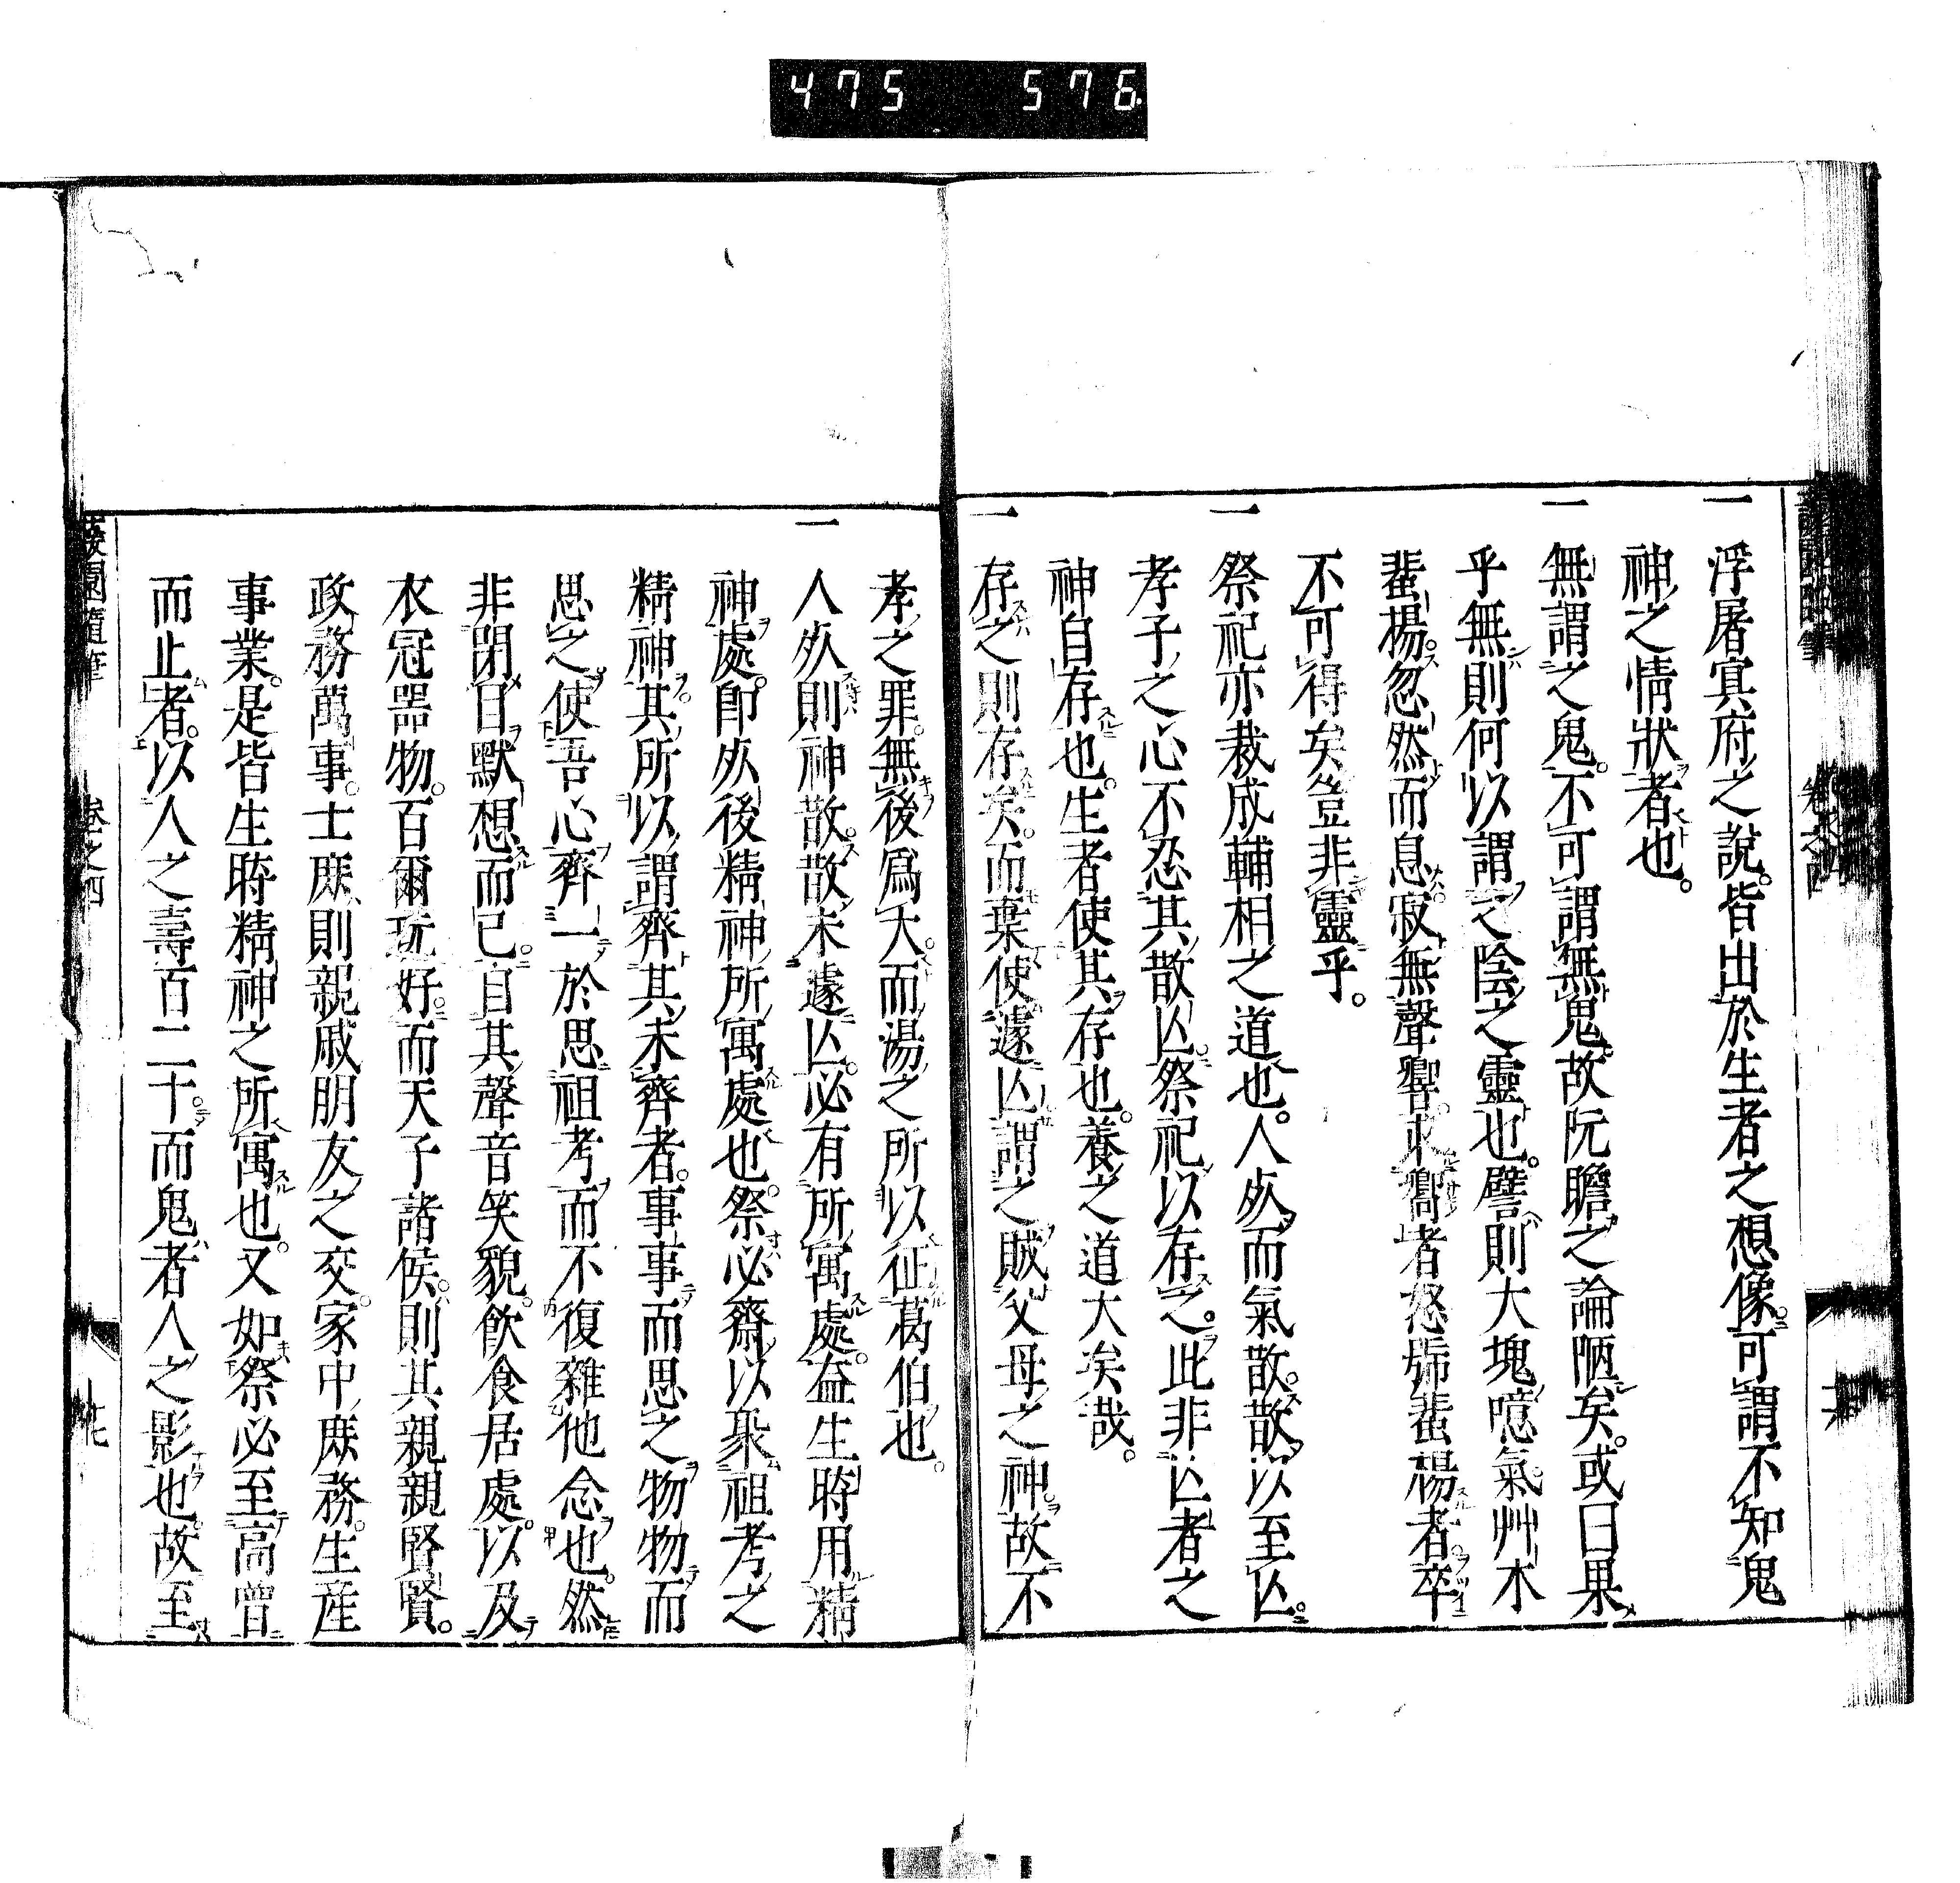 475 576
一浮屠冥府之說。皆出於生者之想像。可謂不知鬼
神之情狀者也。
一無謂之鬼。不可謂無鬼。故阮瞻之論陋矣。或曰果
乎無則何以謂之陰之靈也。譬則大塊噫氣艸木
蜚揚。忽然而息寂無聲響。求嚮者怒號蜚揚者卒
不可得矣。豈非靈乎。
一祭祀亦裁成輔相之道也。人死而氣散。散以至亾。
孝子之心不忍其散亾。祭祀以存之。此非亾者之
神自存也。生者使其存也。養之道大矣哉。
一存之則存矣。而棄使遽亾。謂之賊父母之神。故不
孝之罪。無後爲大。而湯之所以征葛伯也。
一人死則神散。散未遽亾。必有所寓處。益生時用精
神處。卽死後精神所寓處也。祭必齋以聚祖考之
精神。其所以謂齊其未齊者。事事而思之物物而
思之。使吾心齊一於思祖考而不復雜他念也。然
非閉目默想而已。自其聲音笑貌。飮食居處。以及
衣冠器物。百爾玩好。而天子諸侯。則其親親賢賢。
政務萬事。士庶則親戚朋友之交。家中庶務。生産
事業。是皆生時精神之所寓也。又如祭必至高曾
而止者。以人之壽百二十。而鬼者人之影也。故至
蘐園隨筆 卷之四